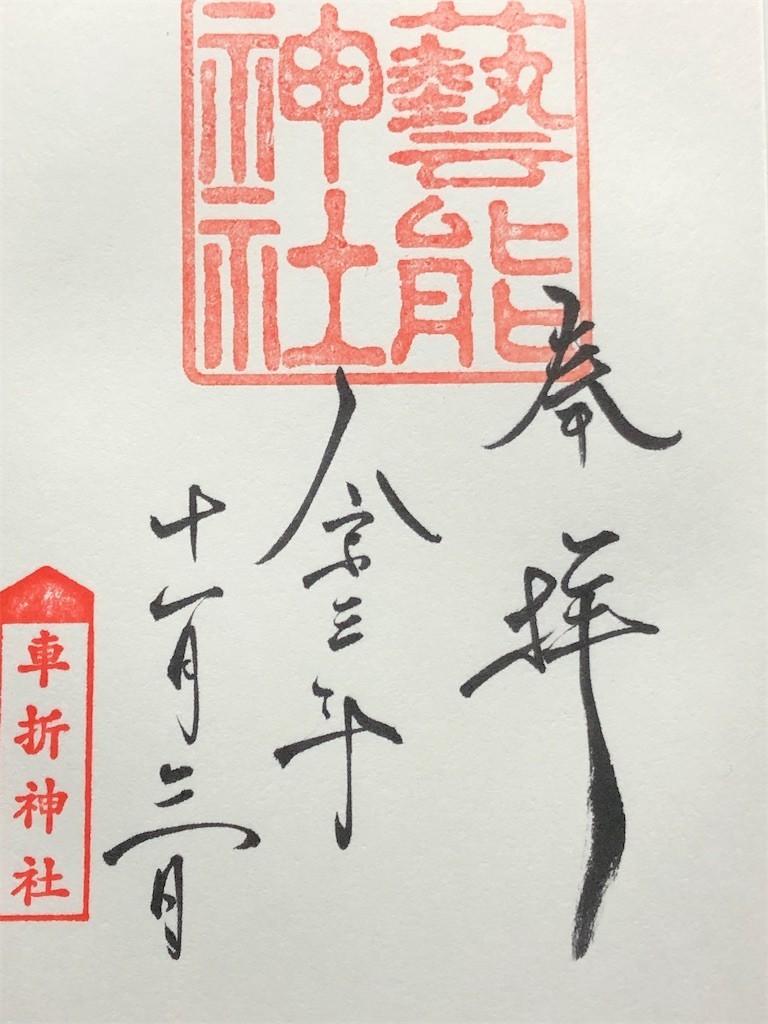 奉拝
藝能
神社
令和三年
十一月三日
車折神社